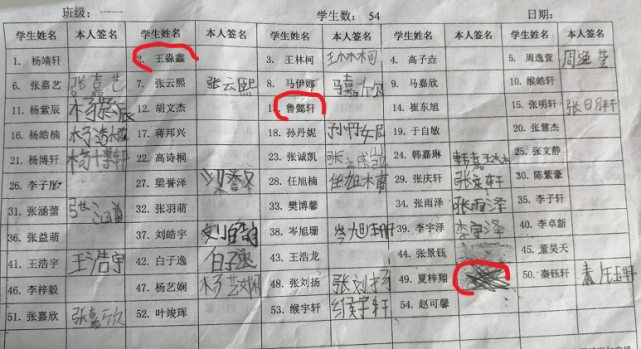 班级：一一 学生数：54 日期：
学生姓名 本人签名 学生姓名 本人签名 学生姓名 本人签名 学生姓名 本人签名 学生姓名 本人签名
1. 杨靖轩 2. 王淼鑫 3. 王林柯 王林柯 4. 高子垚 5. 周逸萱
6. 张嘉艺 张嘉艺 7. 张云熙 张云熙 8. 马伊娜 9. 马嘉欣 10. 缑皓轩
11. 杨紫辰 杨紫辰 12. 胡文杰 13. 鲁懿轩 14. 崔东旭 15. 张明轩 张明轩
16. 杨皓楠 杨浩楠 17. 蒋邦兴 18. 孙丹妮 19. 于自敏 20. 张慧杰
21. 杨博轩 杨博轩 22. 高诗桐 23. 张诚凯 24. 韩嘉琳 25. 张文静
26. 李子彤 27. 梁誉泽 28. 任旭楠 29. 张庆轩 30. 陈紫豪
31. 张涵蕾 32. 张羽萌 33. 樊博馨 34. 张雨泽 张雨泽 35. 李子轩
36. 张益萌 37. 刘皓宇 38. 岑旭珊 岑旭珊 39. 李宇泽 李宇泽 40. 李卓新
41. 王浩宇 王浩宇 42. 白子逸 白子逸 43. 王浩龙 44. 张景钰 45. 董昊天
46. 李梓毅 47. 杨艺娴 杨艺娴 48. 张刘扬 张刘扬 49. 夏梓翔 50. 秦钰轩
51. 张嘉欣 张嘉欣 52. 叶竣珲 53. 缑宇轩 缑宇轩 54. 赵可馨